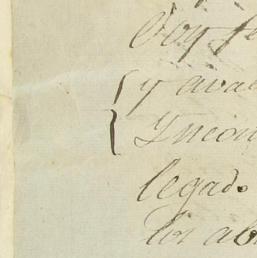 Doy fe
y aval
Yncon
legado
los ab